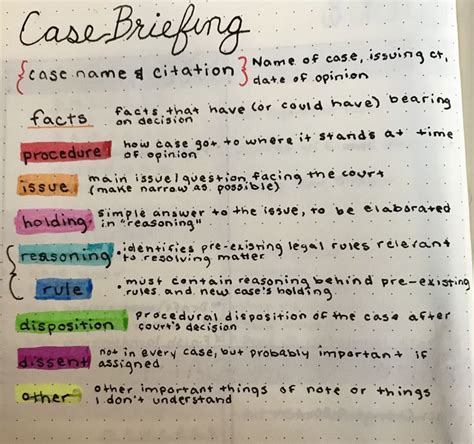 Case Briefing
{case name & citation} Name of case, issuing ct,
date of opinion
facts facts that have (or could have) bearing
on decision
procedure how case got to where it stands at time
of opinion
issue main issue/question facing the court
(make narrow as possible)
holding simple answer to the issue, to be elaborated
in "reasoning"
{ reasoning • identifies pre-existing legal rules relevant
to resolving matter
rule • must contain reasoning behind pre-existing
rules and new case's holding.
disposition procedural disposition of the case after
court's decision
dissent not in every case, but probably important if
assigned
other other important things of note or things
I don't understand